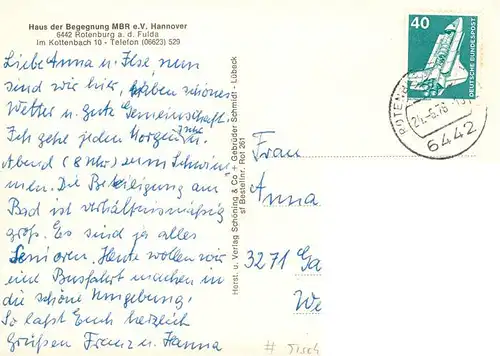 Haus der Begegnung MBR e.V. Hannover
6442 Rotenburg a. d. Fulda
Im Kottenbach 10 - Telefon (06623) 529
Liebe Anna u. Ilse nun
sind wir hier, haben schönes
Wetter u. gute Gemeinschaft.
Ich gehe jeden Morgen u.
Abend (8 Uhr) zum Schwim-
men. Die Beteiligung am
Bad ist verhältnismäßig
groß. Es sind ja alles
Senioren. Heute wollen wir
eine Busfahrt machen in
die schöne Umgebung.
So laßt Euch herzlich
Grüßen Franz u. Hanna
Horst. u. Verlag Schöning & Co + Gebrüder Schmidt - Lübeck
sf Bestellnr. Rot 261
40
DEUTSCHE BUNDESPOST
6442
Frau
Anna
3271 Ga
We
# Tisch